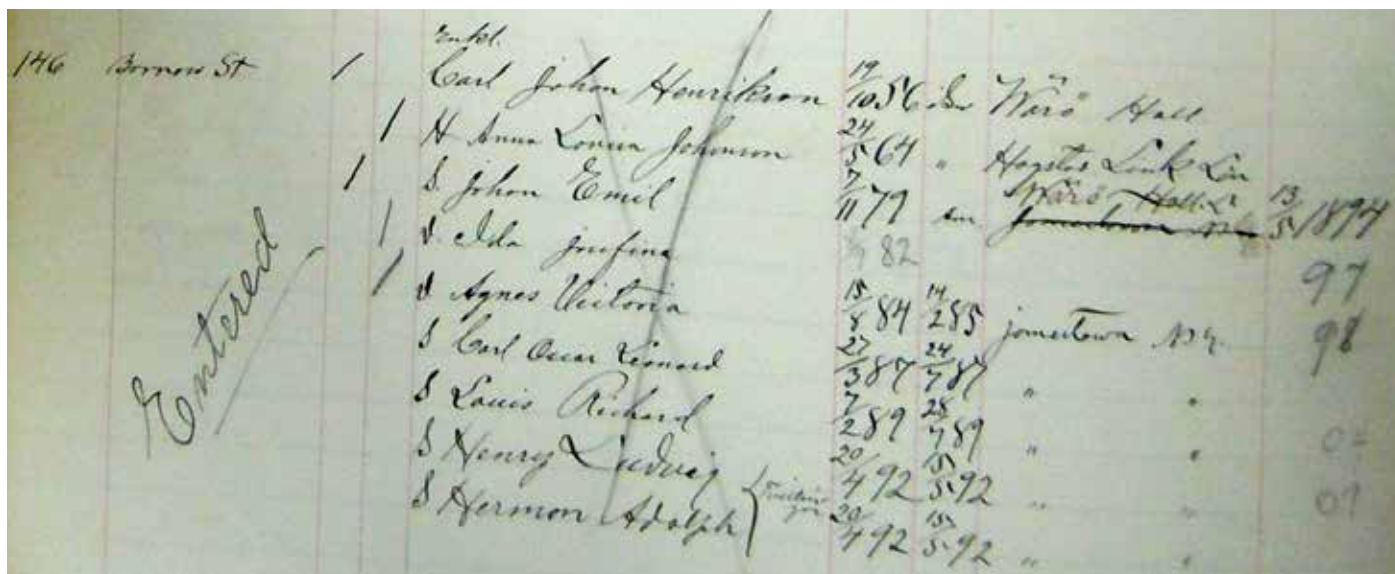 Enkl.
146 Barrow St 1 Carl Johan Henrikson 19/10 56 Wärö Hall
1 H Anna Lovisa Johnson 24/5 64 " Link Län
1 S. Johan Emil 7/11 79 Wärö Hall L 13/5 1894
1 d. Ida Josefina 82 97
1 d Agnes Victoria 15/8 84 14/2 85 Jamestown N.Y. 98
S Carl Oscar Leonard 27/3 87 24/7 87 " "
S Louis Richard 7/2 89 28/7 89 " "
S Henry Ludvig 20/4 92 15/5 92 " " 07
S Herman Adolph 20/4 92 15/5 92 " "
Entered